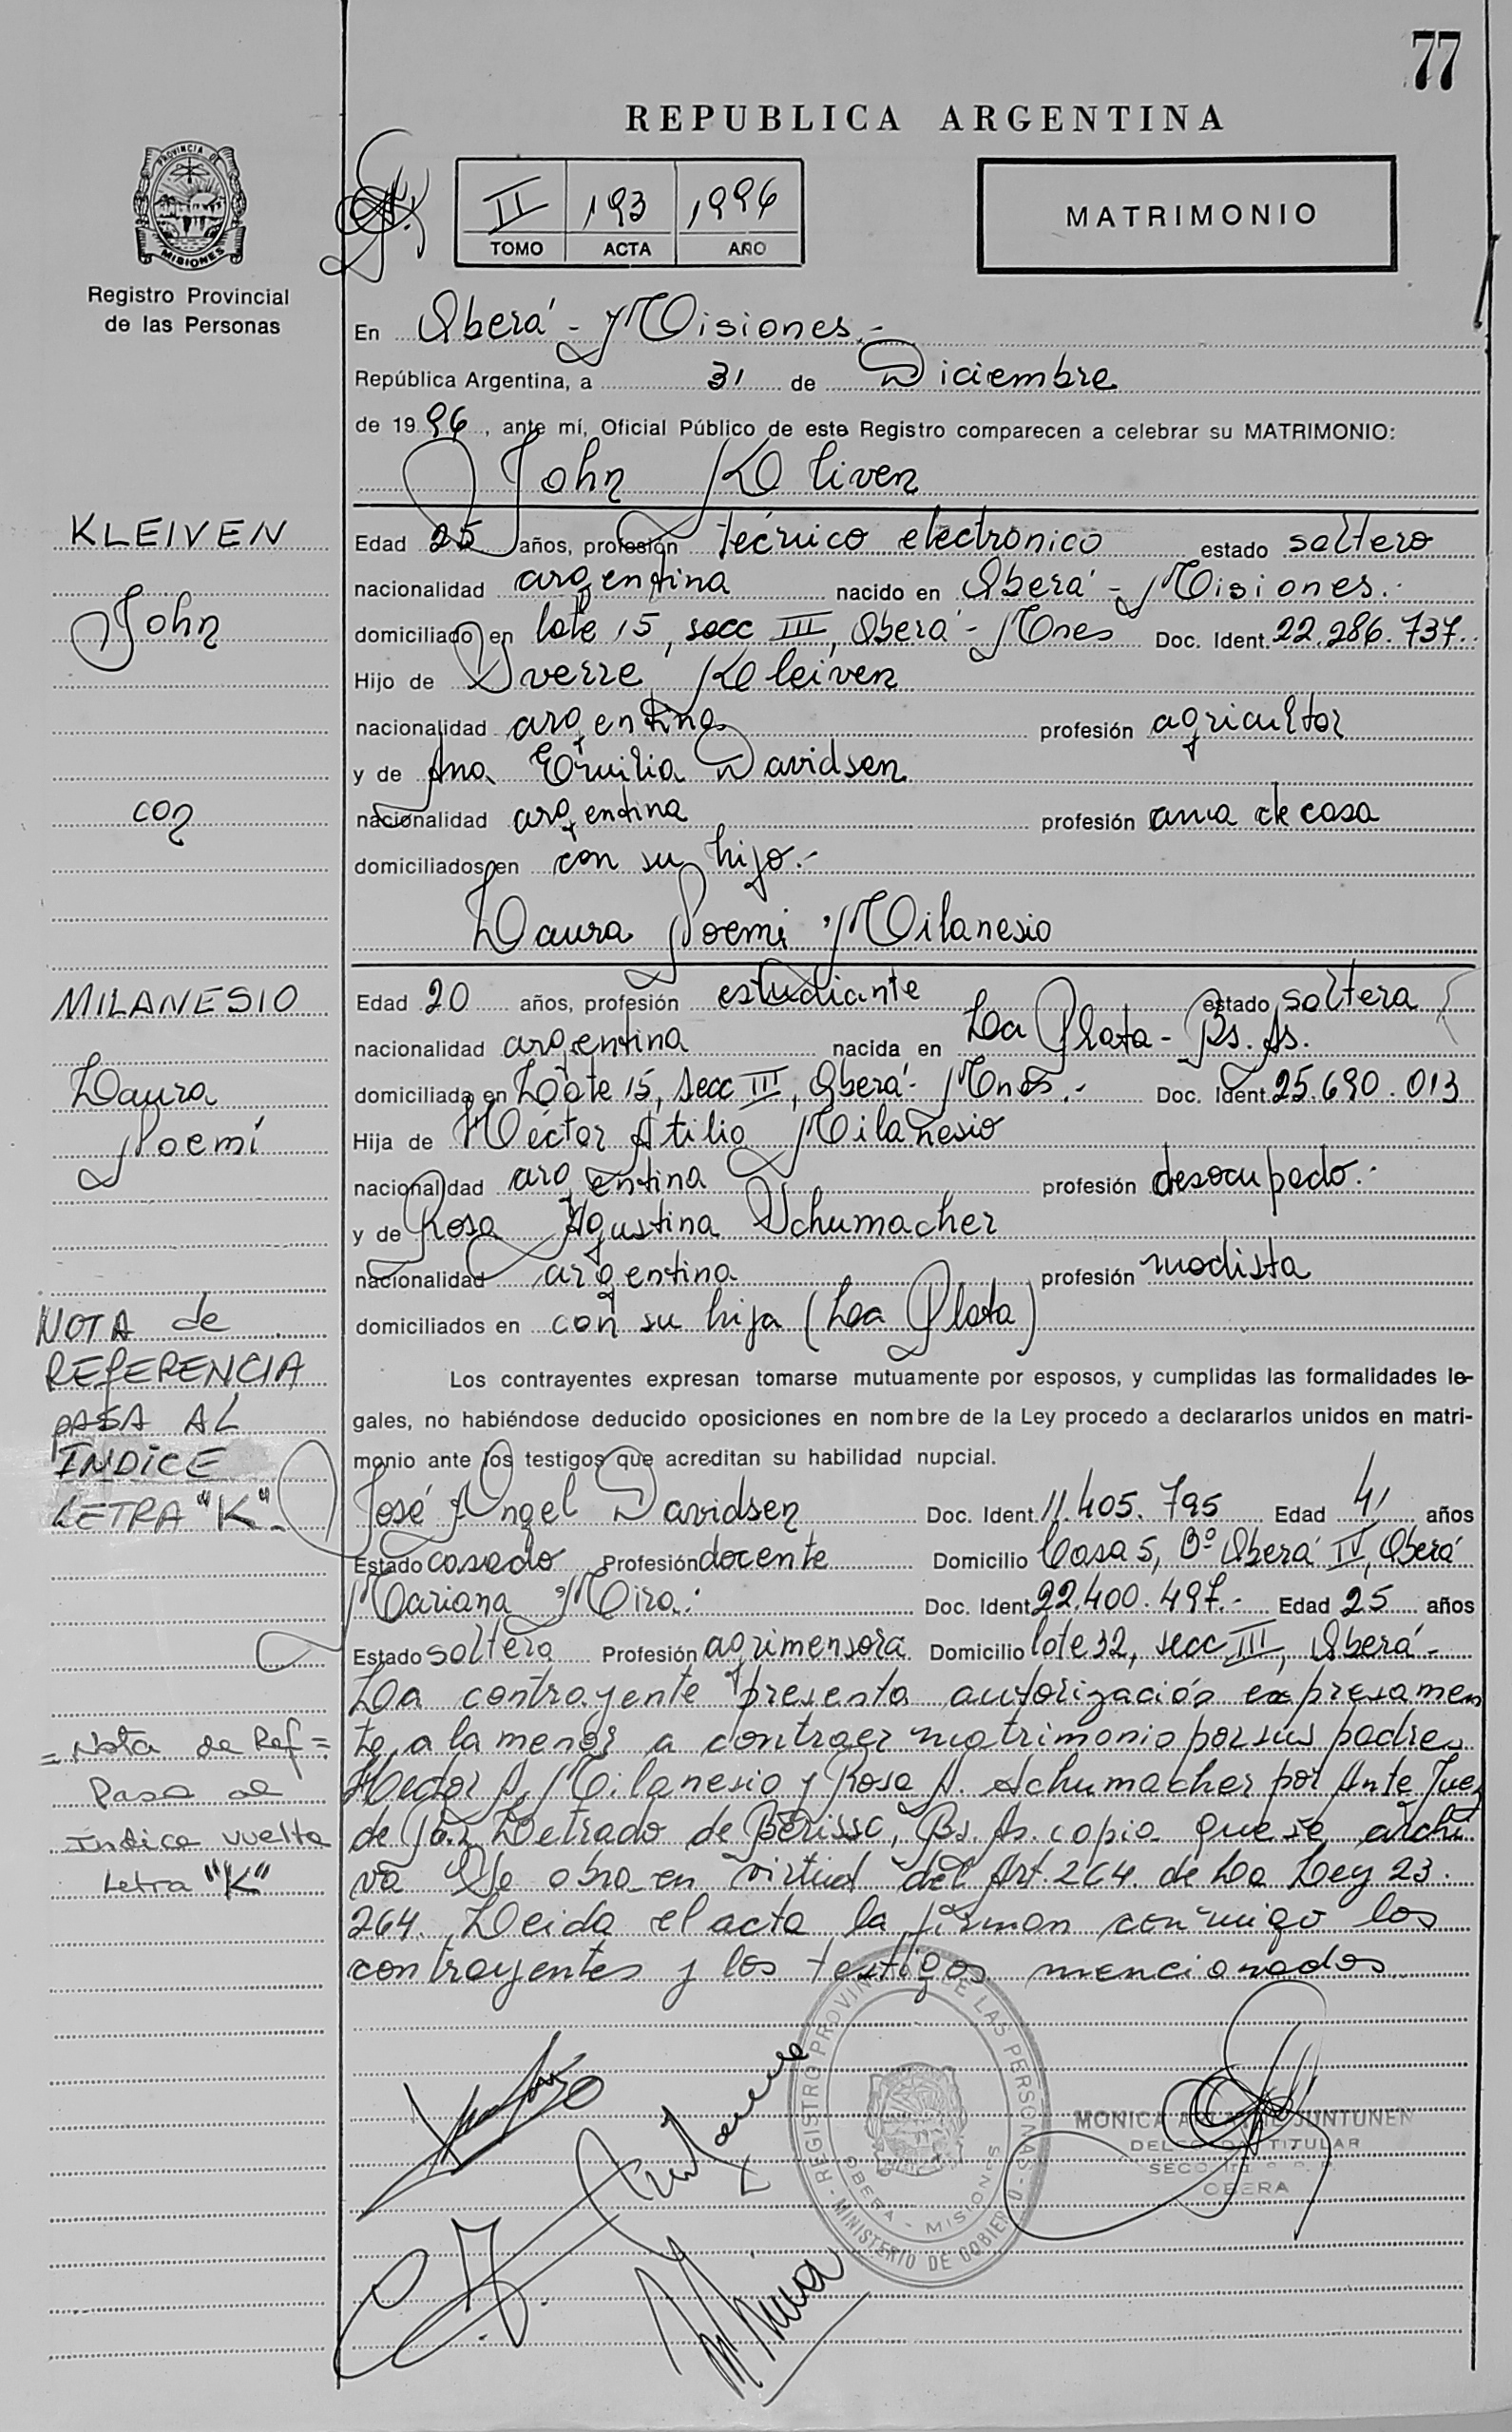 77
REPUBLICA ARGENTINA
PROVINCIA DE
MISIONES
Registro Provincial
de las Personas
II 193 1996
TOMO ACTA AÑO
MATRIMONIO
En Oberá - Misiones.-
República Argentina, a 31 de Diciembre
de 1996, ante mí, Oficial Público de este Registro comparecen a celebrar su MATRIMONIO:
John Kliven
KLEIVEN
John
con
Edad 25 años, profesión técnico electrónico estado soltero
nacionalidad argentina nacido en Oberá - Misiones.-
domiciliado en lote 15, secc III, Oberá - Mnes Doc. Ident. 22.286.737.-
Hijo de Sverre Kleiven
nacionalidad argentina profesión agricultor
y de Ana Emilia Davidsen
nacionalidad argentina profesión ama de casa
domiciliados en con su hijo.-
Laura Noemi Milanesio
MILANESIO
Laura
Noemí
Edad 20 años, profesión estudiante estado soltera
nacionalidad argentina nacida en La Plata - Bs. As.
domiciliada en Lote 15, secc III, Oberá - Mnes.- Doc. Ident. 25.690.013
Hija de Héctor Atilio Milanesio
nacionalidad argentina profesión desocupado.-
y de Rosa Agustina Schumacher
nacionalidad argentina profesión modista
domiciliados en con su hija (La Plata)
NOTA de
REFERENCIA
PASA AL
INDICE
LETRA "K".-
Los contrayentes expresan tomarse mutuamente por esposos, y cumplidas las formalidades le-
gales, no habiéndose deducido oposiciones en nombre de la Ley procedo a declararlos unidos en matri-
monio ante los testigos que acreditan su habilidad nupcial.
José Angel Davidsen Doc. Ident. 11.405.795 Edad 41 años
Estado casado Profesión docente Domicilio Casa 5, Bº Oberá IV, Oberá
Mariana Mira.- Doc. Ident. 22.400.497.- Edad 25 años
Estado soltera Profesión agrimensora Domicilio lote 32, secc III, Oberá -
La contrayente presenta autorización expresamen
te a la menor a contraer matrimonio por sus padres
Hector A. Milanesio y Rosa A. Schumacher por Ante Juez
de Paz Letrado de Berisso, Bs. As. copia que se archi
va Se obra en virtud del Art. 264. de La Ley 23.
264. Leida el acta la firman conmigo los
contrayentes y los testigos mencionados
= Nota de Ref =
Pasa al
Indice vuelta
Letra "K"
REGISTRO PROVINCIAL DE LAS PERSONAS
OBERA - MISIONES
MINISTERIO DE GOBIERNO
MONICA JUNTUNEN
DELEGADA TITULAR
OBERA